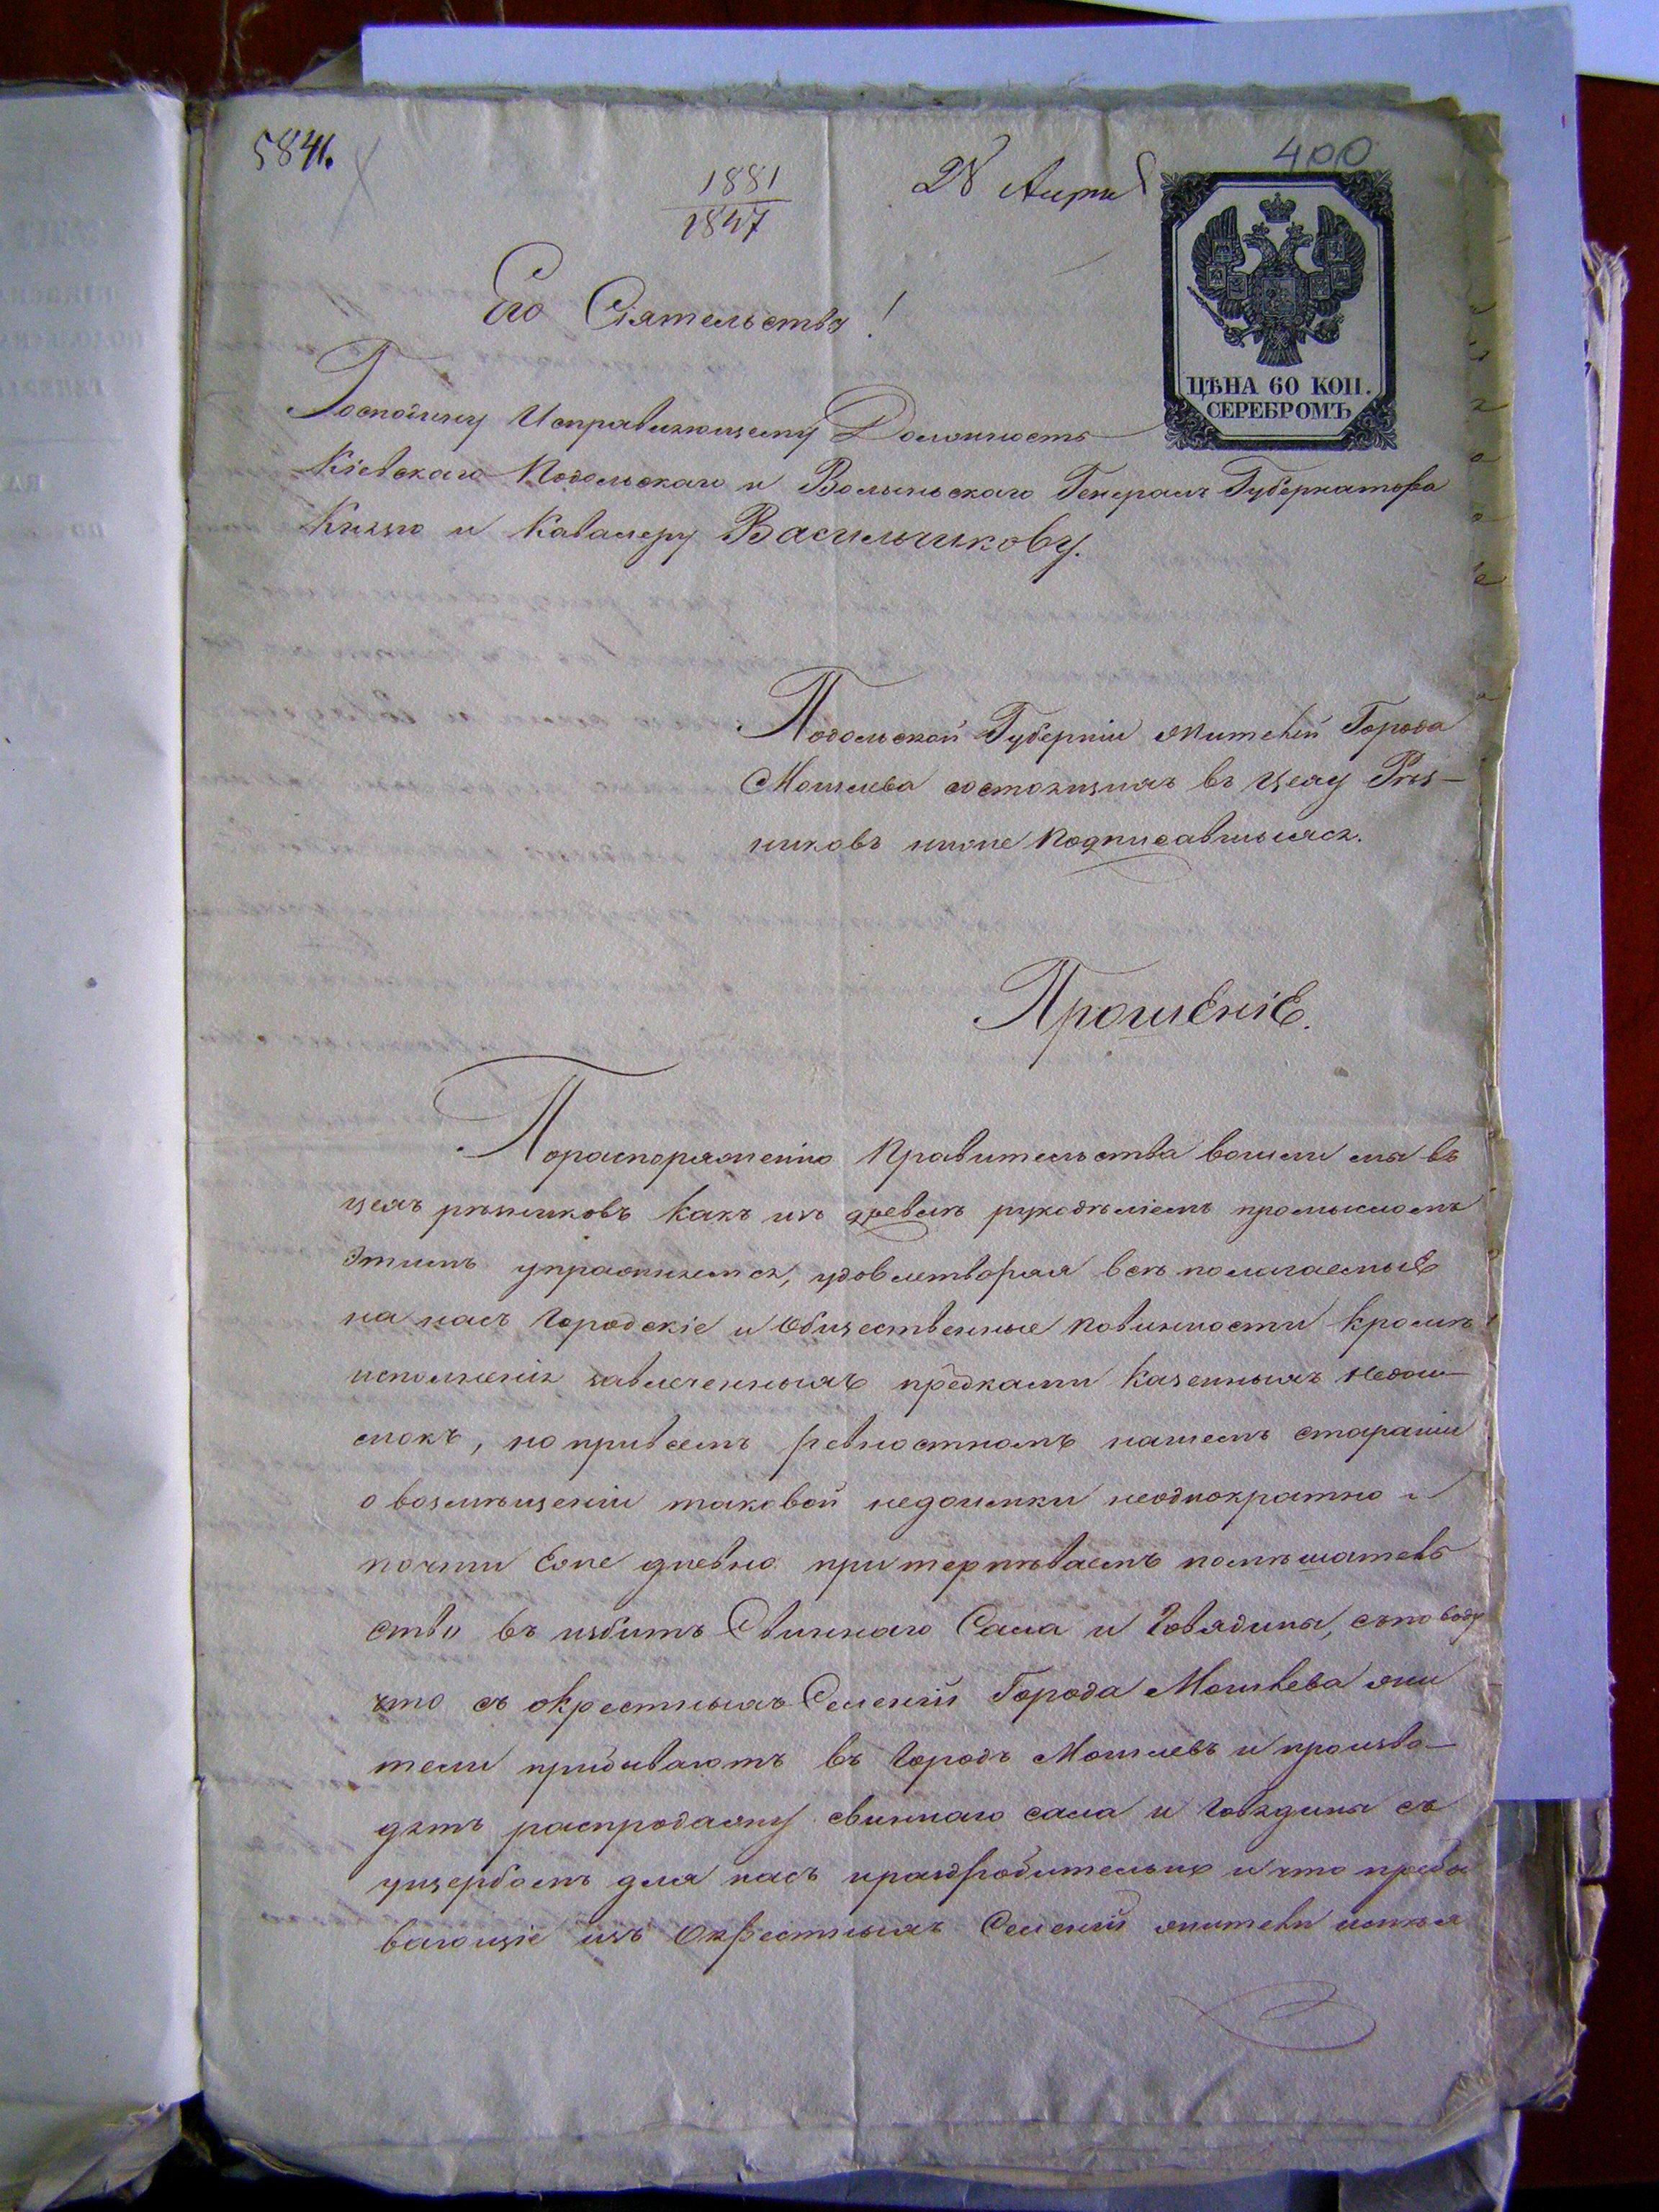 5841.
1881
1847
28 Апрѣ
400
ЦѢНА 60 КОП.
СЕРЕБРОМЪ
Его Сіятельства!
Господину Исправляющему Должность
Кіевскаго Подольскаго и Волынскаго Генералъ Губернатора
Князю и Кавалеру Васильчикову.
Подольской Губерніи жителей Города
Могилева состоящихъ въ цеху Рѣз-
никовъ ниже подписавшыхся.
Прошеніе.
Пораспоряженію Правительства вошли мы въ
цехъ рѣзниковъ какъ изъ древлѣ рукодѣліемъ промысломъ
этимъ упражняемся, удовлетворяя всѣ полагаемые
на насъ городскіе и общественные повинности кромѣ
исполненія завлеченныхъ предками казенныхъ недои-
мокъ, но привсемъ ревностномъ нашемъ стараніи
о возмѣщеніи таковой недоимки неоднократно и
почти еже дневно притерпѣваемъ помѣшатель
ство въ избитъ Свиннаго Сала и Говядины, съповоду
что съ окрестныхъ Селеній Города Могилева жи
тели прибываютъ въ городъ Могилевъ и произво-
дятъ распродажу свиннаго сала и говядины съ
ущербомъ для насъ праздробительно и что прибы
вающіе изъ окрестныхъ Селеній жители